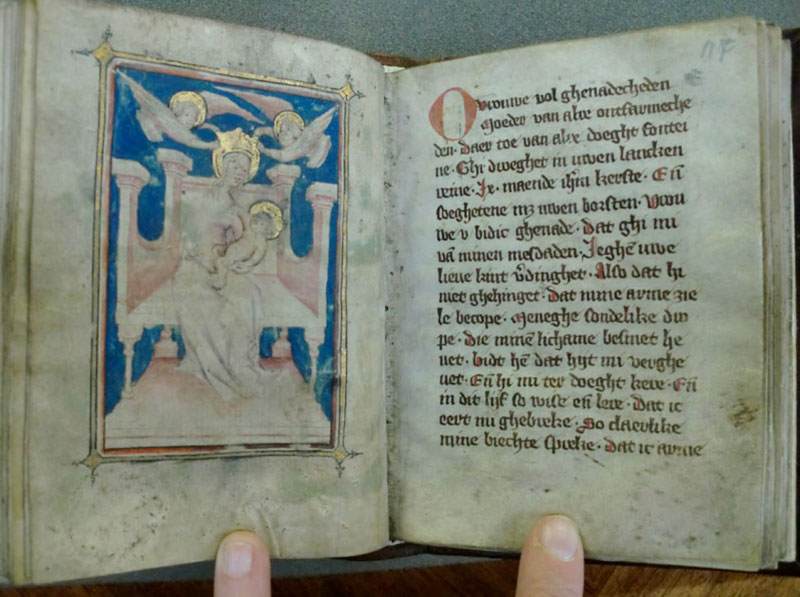 O vrouwe vol ghenadecheden
Moeder van alre ontfarmeche
den. Daer toe van alre doeght fontei
ne. Ghi dweghet in uwen lancken
reine. Ihm kerste. Eñ
soeghetene uwen borsten. Vrou
we v bidic ghenade. Dat ghi mi
vā minen mesdaden. Jeghē uwe
lieue kint v̄dinghet. Also dat hi
niet ghehinget. Dat mine arme zie
le becope. Meneghe sondelike dro
pe. Die minē lichame besmet he
uet. Bidt hē dat hijt mi verghe
uet. Eñ hi mi ter doeght kere. Eñ
in dit lijf so wise eñ lere. Dat ic
eert mi ghebreke. So claerlike
mine biechte spreke. Dat ic arme